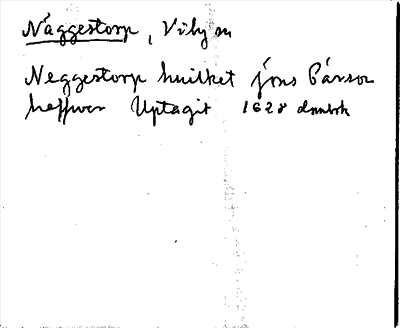 Näggestorp, Viby sn
Neggestorp huilket jöns Pärson
heffwer Uptagit 1628 dombok